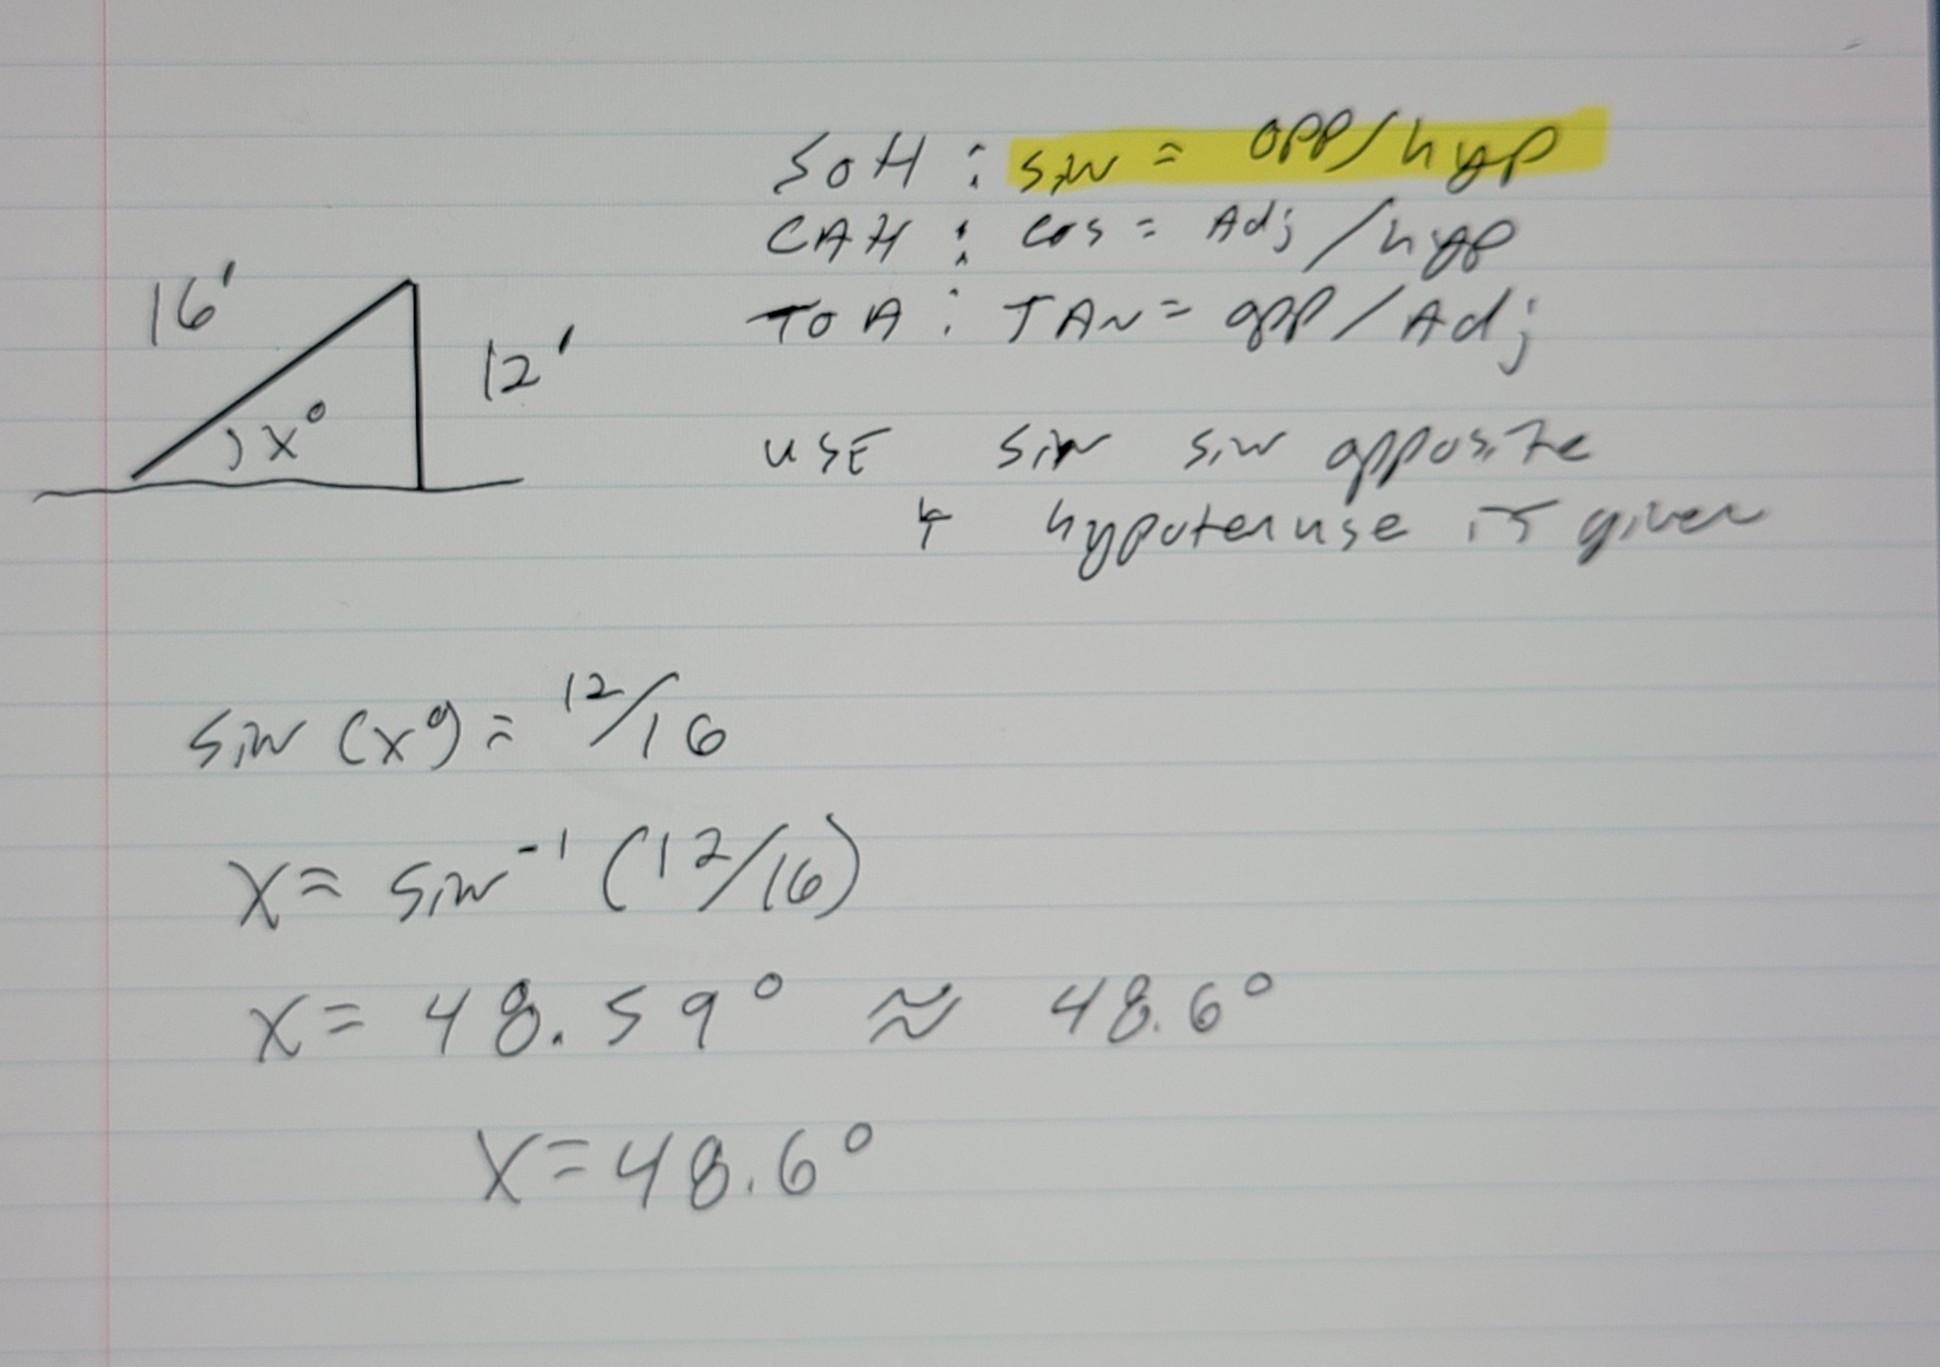 SOH : sin = opp/hyp
CAH : cos = Adj/hyp
TOA : TAN = opp/Adj
16'
12'
x°
USE sin sin opposite
& hypotenuse is given
sin (x°) = 12/16
X = sin⁻¹ (12/16)
X = 48.59° ≈ 48.6°
X = 48.6°